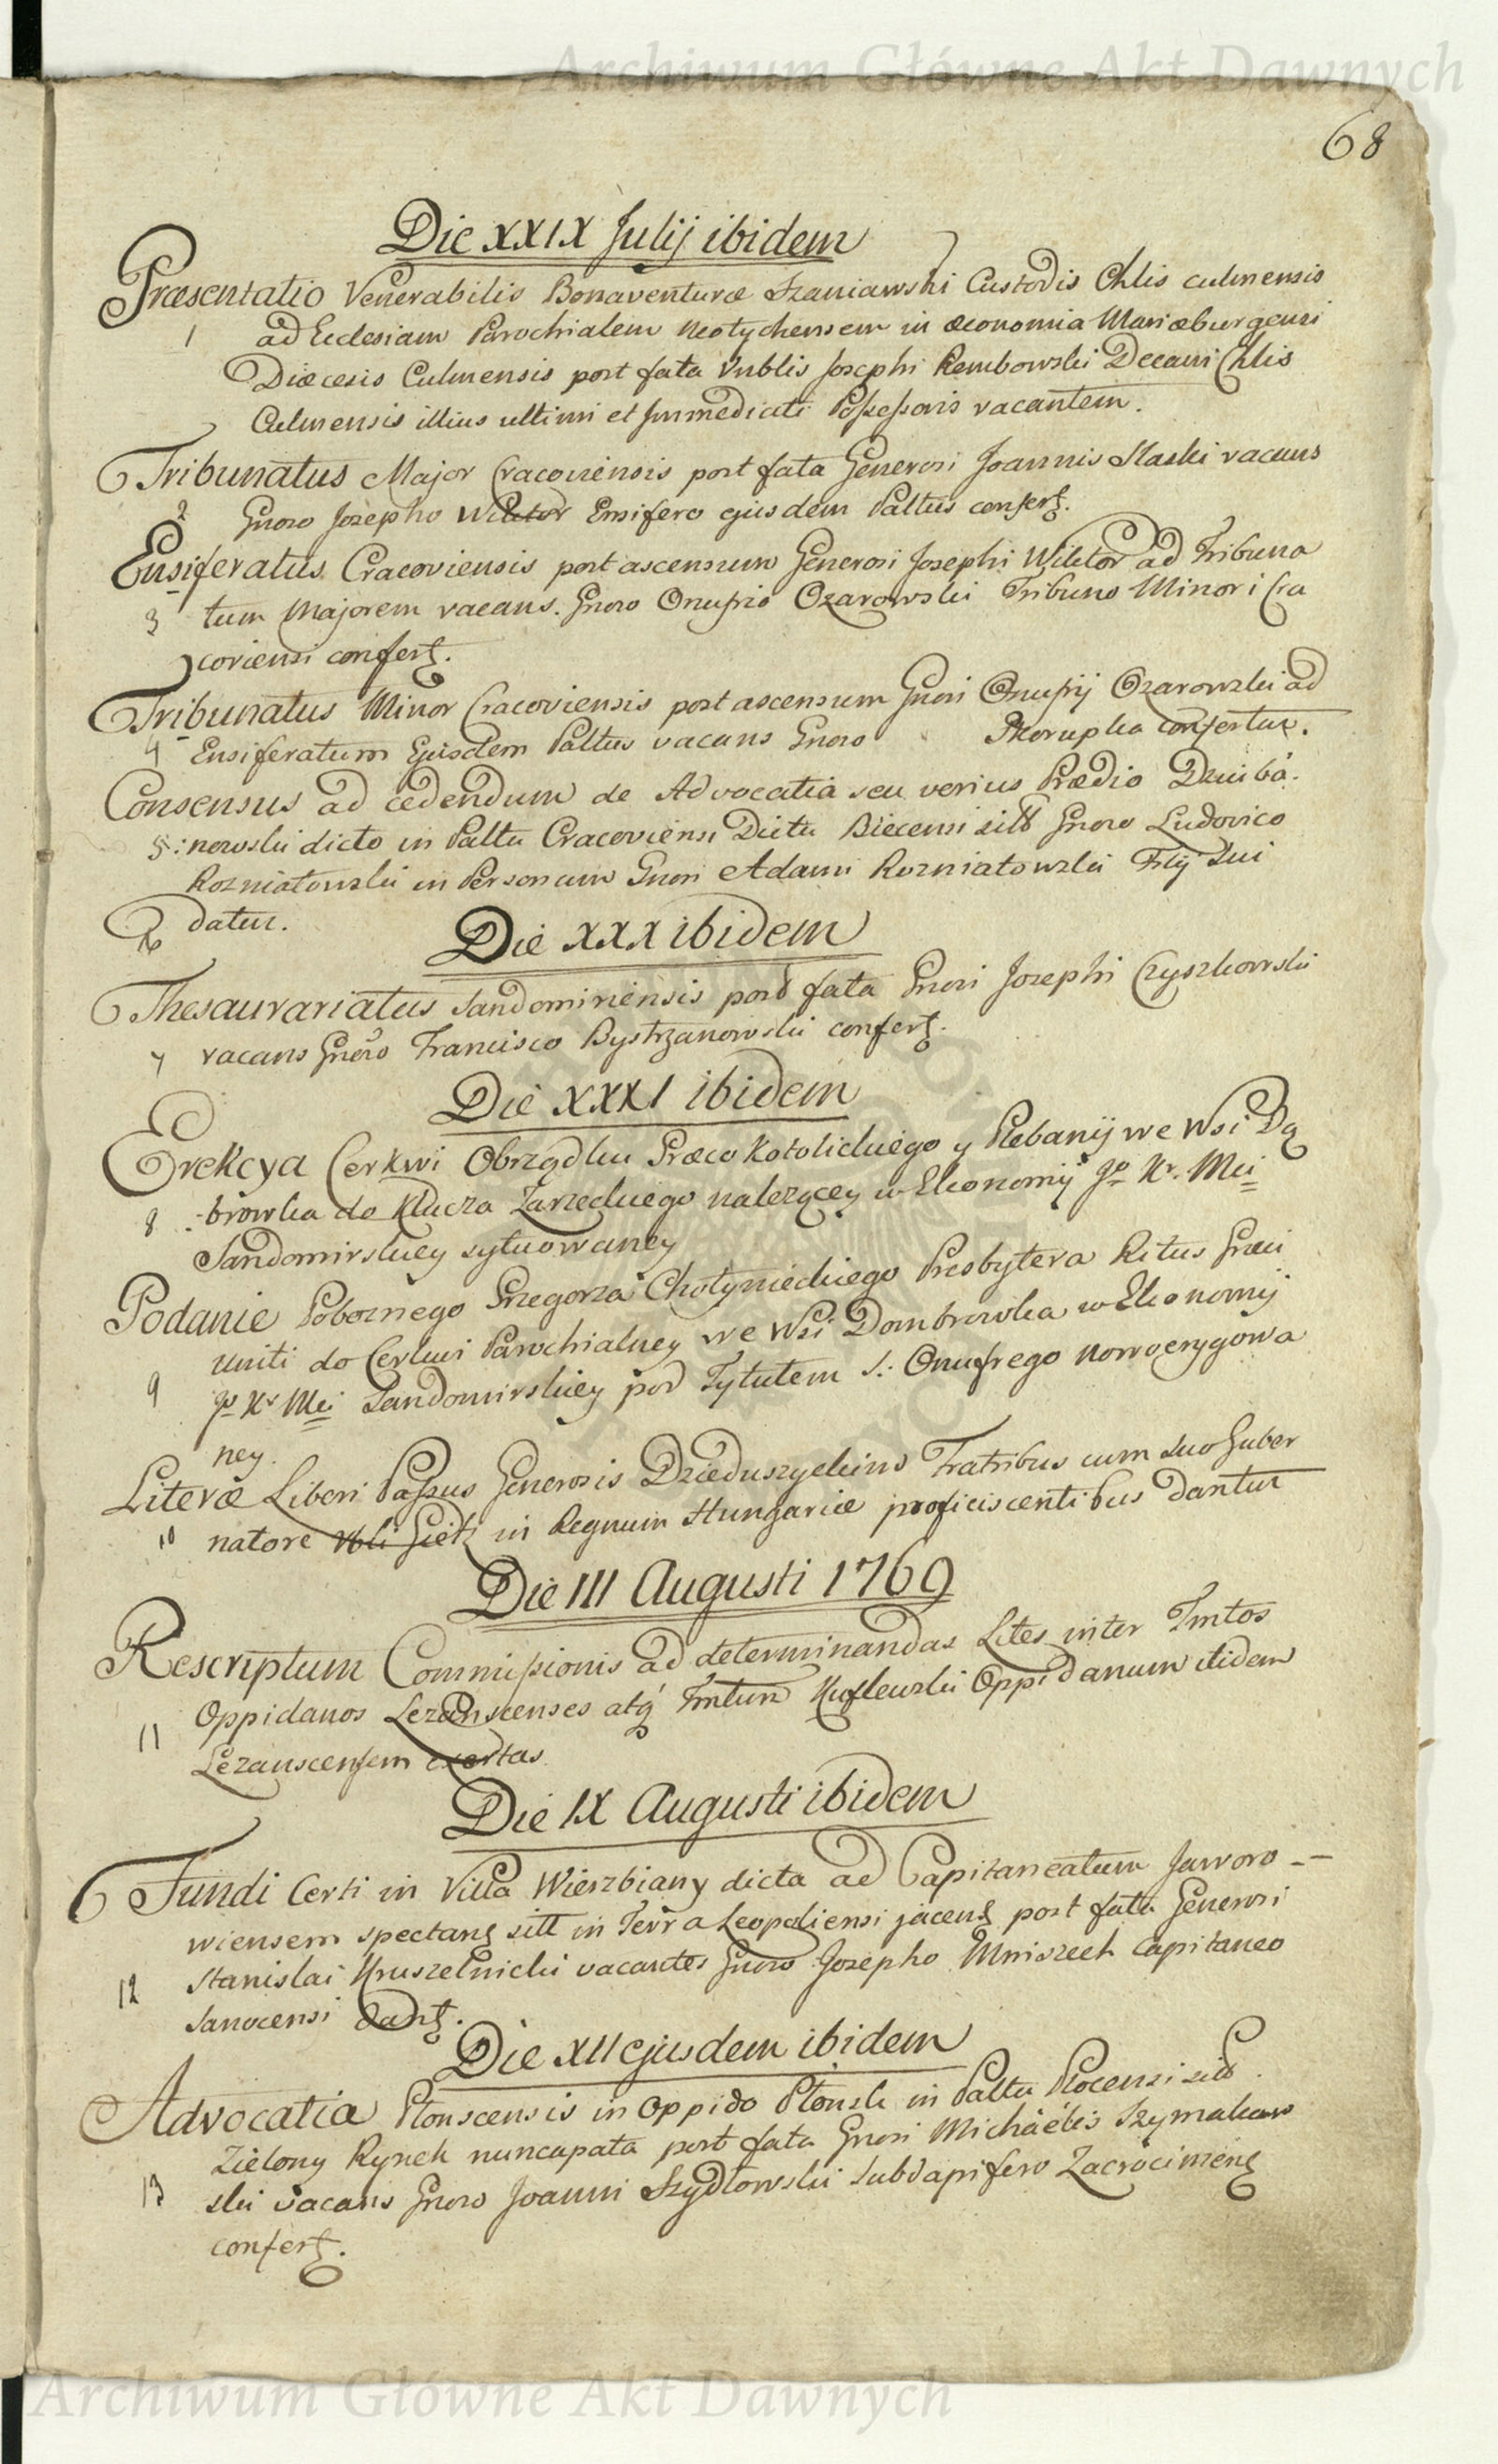 Archiwum Główne Akt Dawnych
68
Die XXIX Julij ibidem
Præsentatio Venerabilis Bonaventuræ Szaniawski Custodis Chlis culmensis
1 ad Ecclesiam Parochialem Neotychensem in œconomia Mariæburgensi
Diæcesis Culmensis post fata Vnblis Josephi Rembowski Decani Chlis
Culmensis illius ultimi et Immediati Possessoris vacantem.
Tribunatus Major Cracoviensis post fata Generosi Joannis Slaski vacans
2 Gnoso Josepho Wiktor Ensifero ejusdem Pallus confert.
Ensiferatus Cracoviensis post ascensum Generosi Josephi Wiktor ad Tribuna
3 tum Majorem vacans. Gnoso Onufrio Ozarowski Tribuno Minori Cra
coviensi confert.
Tribunatus Minor Cracoviensis post ascensum Gnosi Onufrij Ozarowski ad
4 Ensiferatum Ejusdem Pallus vacans Gnoso Skorupka confertur.
Consensus ad cedendum de Advocatia seu verius Prædio Dziuba:
5 :nowski dicto in Paltu Cracoviensi Dictu Biecensi sitt Gnoso Ludovico
Rozniatowski in Personam Gnosi Adami Rozniatowski Filij Sui
6 datur.
Die XXX ibidem
Thesaurariatus Sandomiriensis post fata Gnosi Josephi Czyszkowski
7 vacans Gnoso Francisco Bystrzanowski confert.
Die XXXI ibidem
Erekcya Cerkwi Obrządku Græco Katolickiego y Plebanij we Wsi Dą
8 :browka do Klucza Zarzeckiego nalezącey w Ekonomij Jo Kr. Mci
Sandomirskiey sytuowaney
Podanie Poboznego Grzegorza Chotynieckiego Presbytera Ritus Græci
uniti do Cerkwi Parochialney we Wsi Dombrowka w Ekonomij
9 Jo Kr Mci Sandomirskiey pod Tytułem S: Onufrego nowoerygowa
ney.
Literæ Liberi Passus Generosis Dzieduszyckius Fratribus cum suo Guber
10 natore Nbli Gietz in Regnum Hungariæ proficiscentibus dantur
Die III Augusti 1769
Rescriptum Commissionis ad determinandas Lites inter Fmtos
Oppidanos Lezanscenses atq Fmtum Kuflewski Oppidanum itidem
11 Lezanscensem exortas
Die IX Augusti ibidem
Fundi Certi in Villa Wierzbiany dicta ad Capitaneatum Jaworo --
wiensem spectans sitt in Terra Leopoliensi jacens post fata Generosi
12 Stanislai Kruszelnicki vacantes Gnoso Josepho Mniszech Capitaneo
Sanocensi dant.
Die XII ejusdem ibidem
Advocatia Płonscensis in Oppido Płonsk in Paltu Plocensi sitt
Zielony Rynek nuncupata post fata Gnosi Michaëlis Szymakow
13 ski vacans Gnoso Joanni Szydłowski Subdapifero Zacrocimens
confert.
Archiwum Główne Akt Dawnych